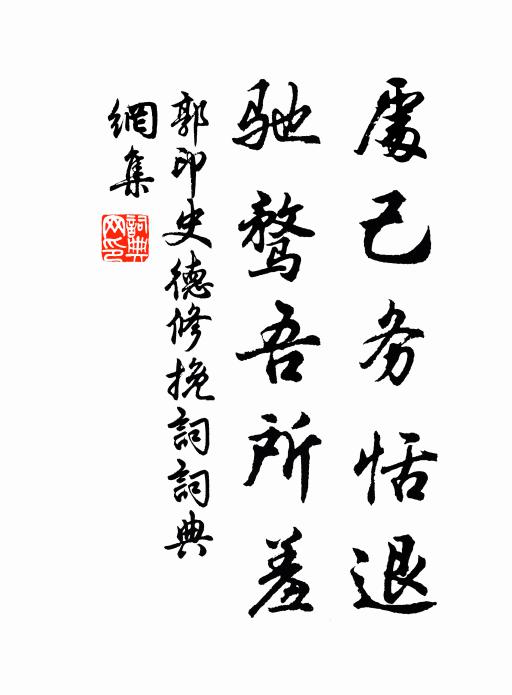 處己务恬退
馳鶩吾所羞
郭印史德修挽詞詞典
網集
詞典
网印